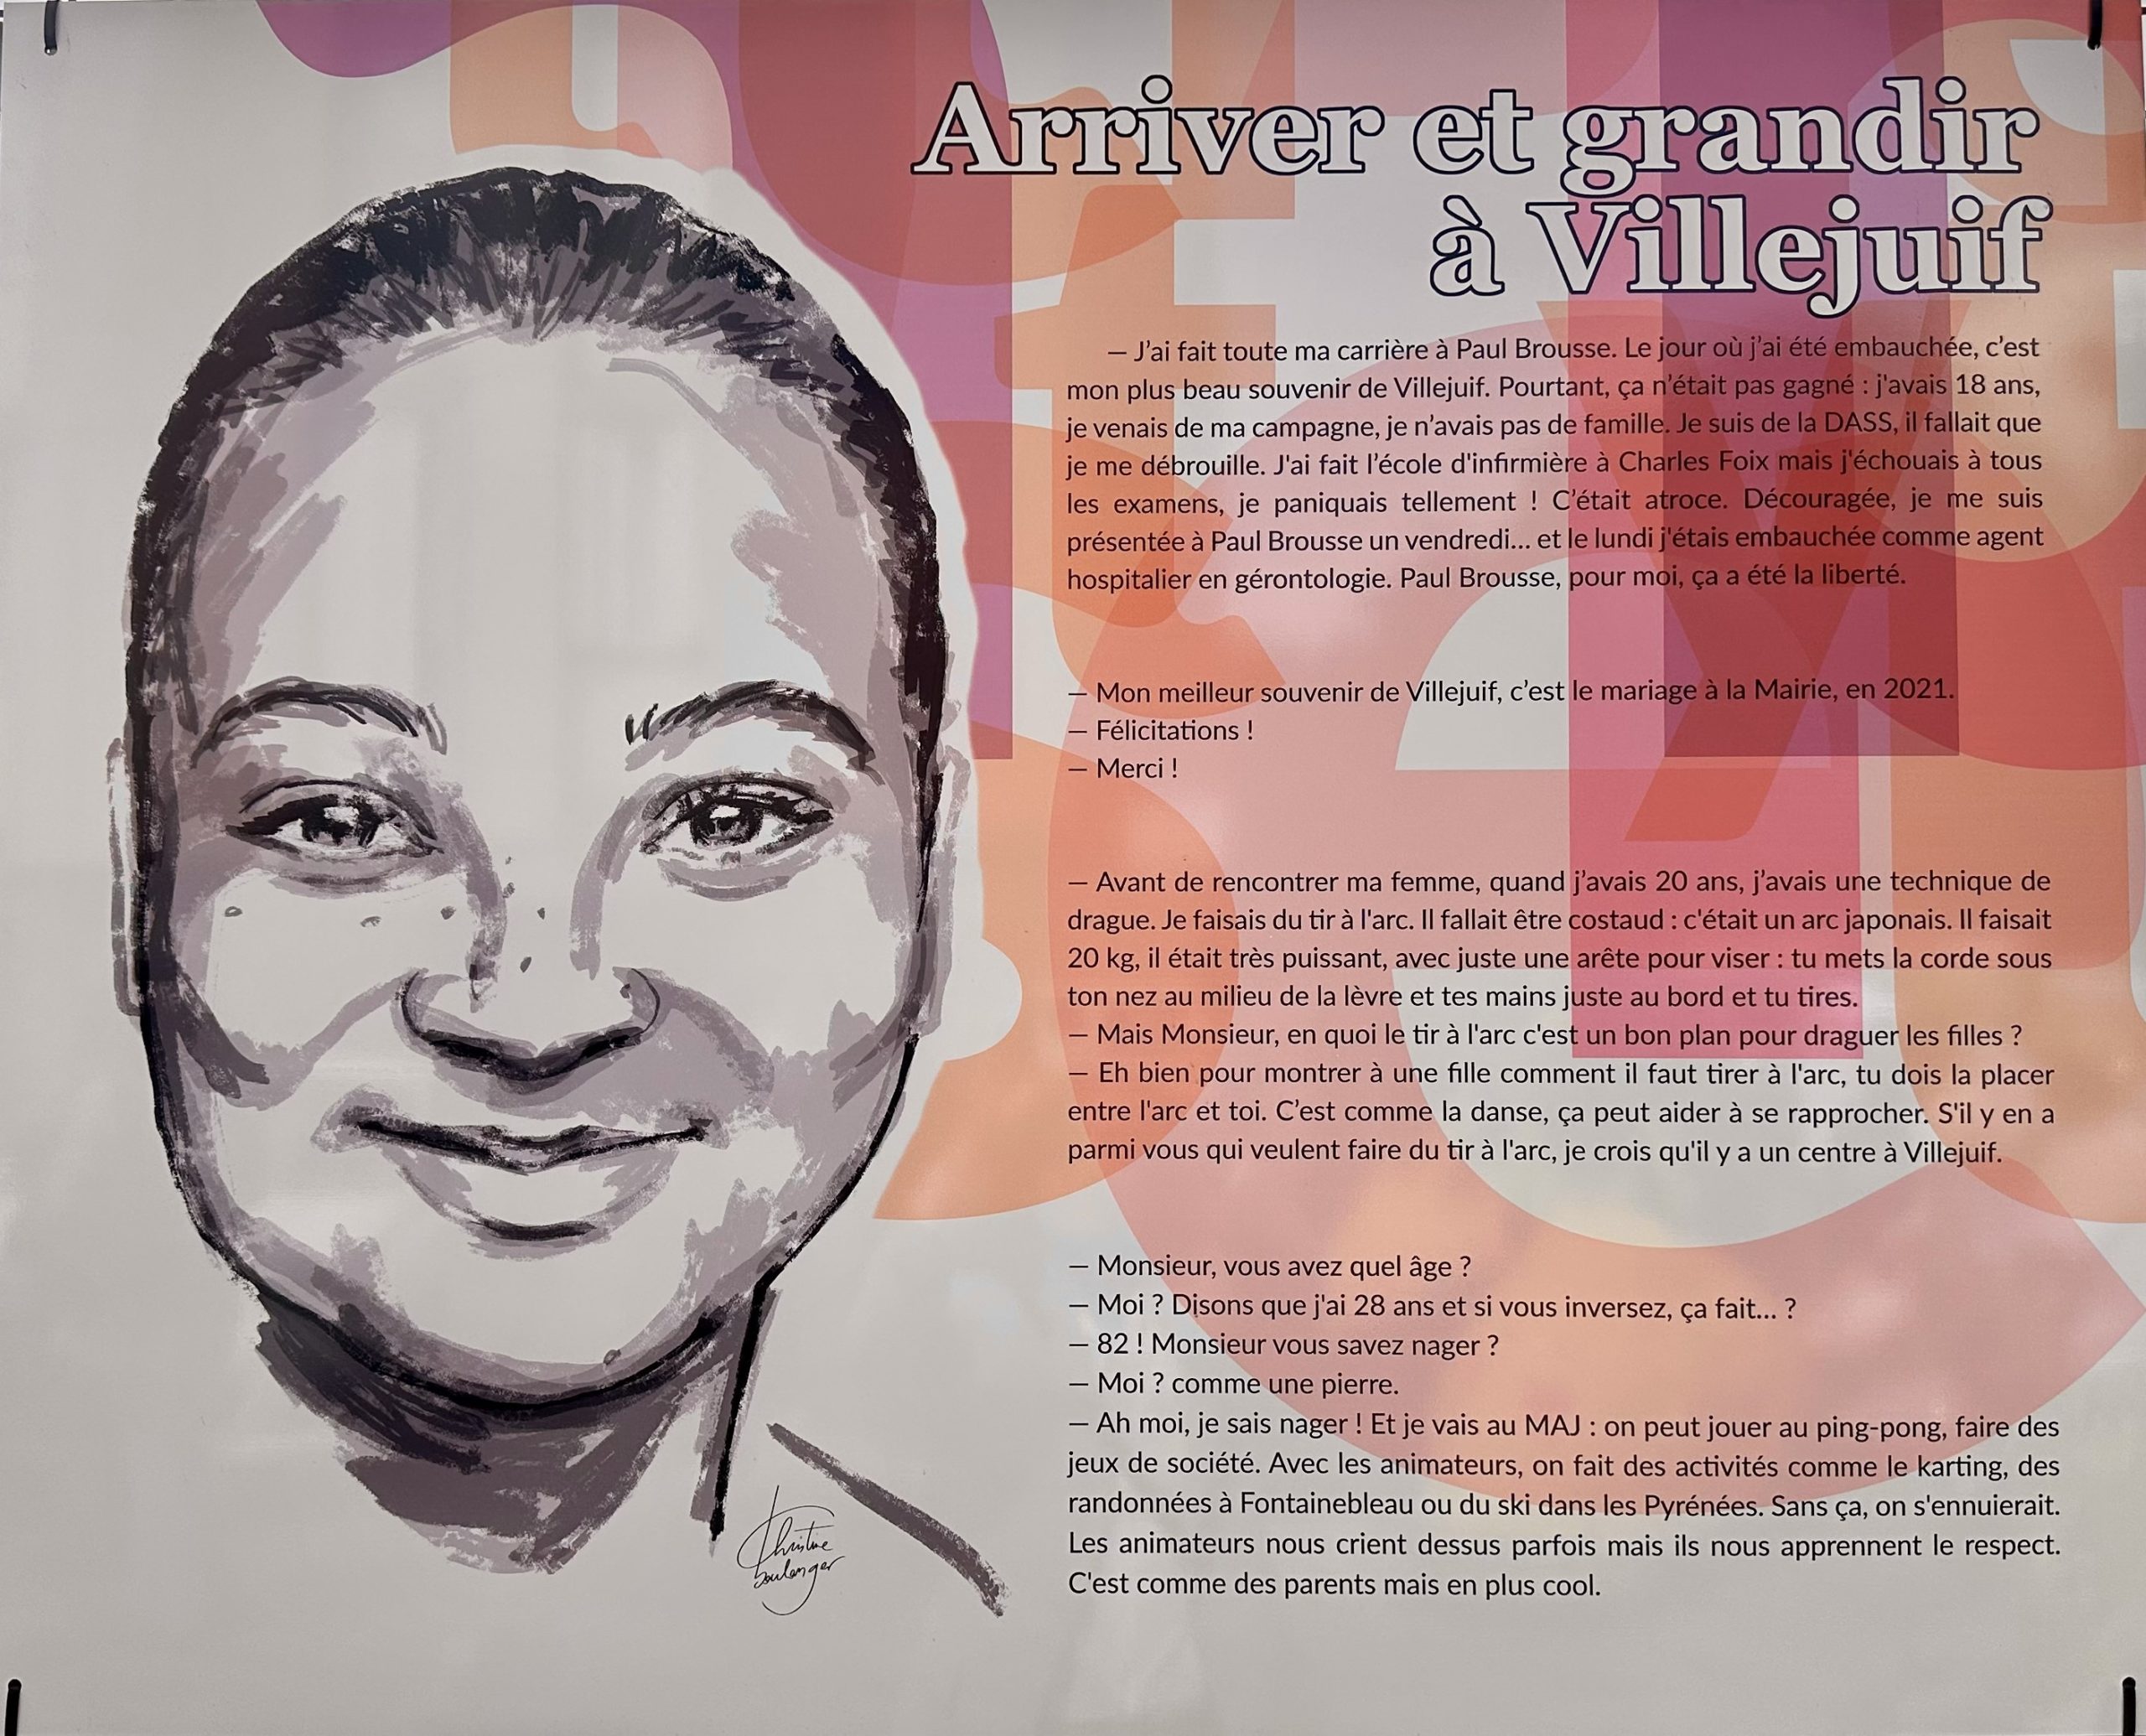 Arriver et grandir
à Villejuif
— J’ai fait toute ma carrière à Paul Brousse. Le jour où j’ai été embauchée, c’est
mon plus beau souvenir de Villejuif. Pourtant, ça n’était pas gagné : j'avais 18 ans,
je venais de ma campagne, je n’avais pas de famille. Je suis de la DASS, il fallait que
je me débrouille. J'ai fait l’école d'infirmière à Charles Foix mais j'échouais à tous
les examens, je paniquais tellement ! C’était atroce. Découragée, je me suis
présentée à Paul Brousse un vendredi... et le lundi j'étais embauchée comme agent
hospitalier en gérontologie. Paul Brousse, pour moi, ça a été la liberté.
— Mon meilleur souvenir de Villejuif, c’est le mariage à la Mairie, en 2021.
— Félicitations !
— Merci !
— Avant de rencontrer ma femme, quand j’avais 20 ans, j’avais une technique de
drague. Je faisais du tir à l'arc. Il fallait être costaud : c'était un arc japonais. Il faisait
20 kg, il était très puissant, avec juste une arête pour viser : tu mets la corde sous
ton nez au milieu de la lèvre et tes mains juste au bord et tu tires.
— Mais Monsieur, en quoi le tir à l'arc c'est un bon plan pour draguer les filles ?
— Eh bien pour montrer à une fille comment il faut tirer à l'arc, tu dois la placer
entre l'arc et toi. C’est comme la danse, ça peut aider à se rapprocher. S'il y en a
parmi vous qui veulent faire du tir à l'arc, je crois qu'il y a un centre à Villejuif.
— Monsieur, vous avez quel âge ?
— Moi ? Disons que j'ai 28 ans et si vous inversez, ça fait... ?
— 82 ! Monsieur vous savez nager ?
— Moi ? comme une pierre.
— Ah moi, je sais nager ! Et je vais au MAJ : on peut jouer au ping-pong, faire des
jeux de société. Avec les animateurs, on fait des activités comme le karting, des
randonnées à Fontainebleau ou du ski dans les Pyrénées. Sans ça, on s'ennuierait.
Les animateurs nous crient dessus parfois mais ils nous apprennent le respect.
C'est comme des parents mais en plus cool.
Christine
boulanger